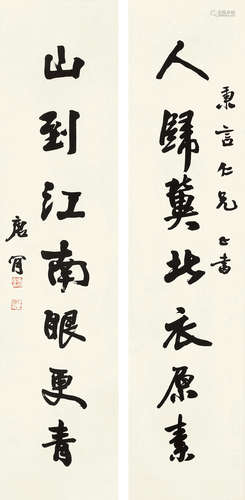 秉言仁兄正書
人歸冀北衣原素
山到江南眼更青
唐肯